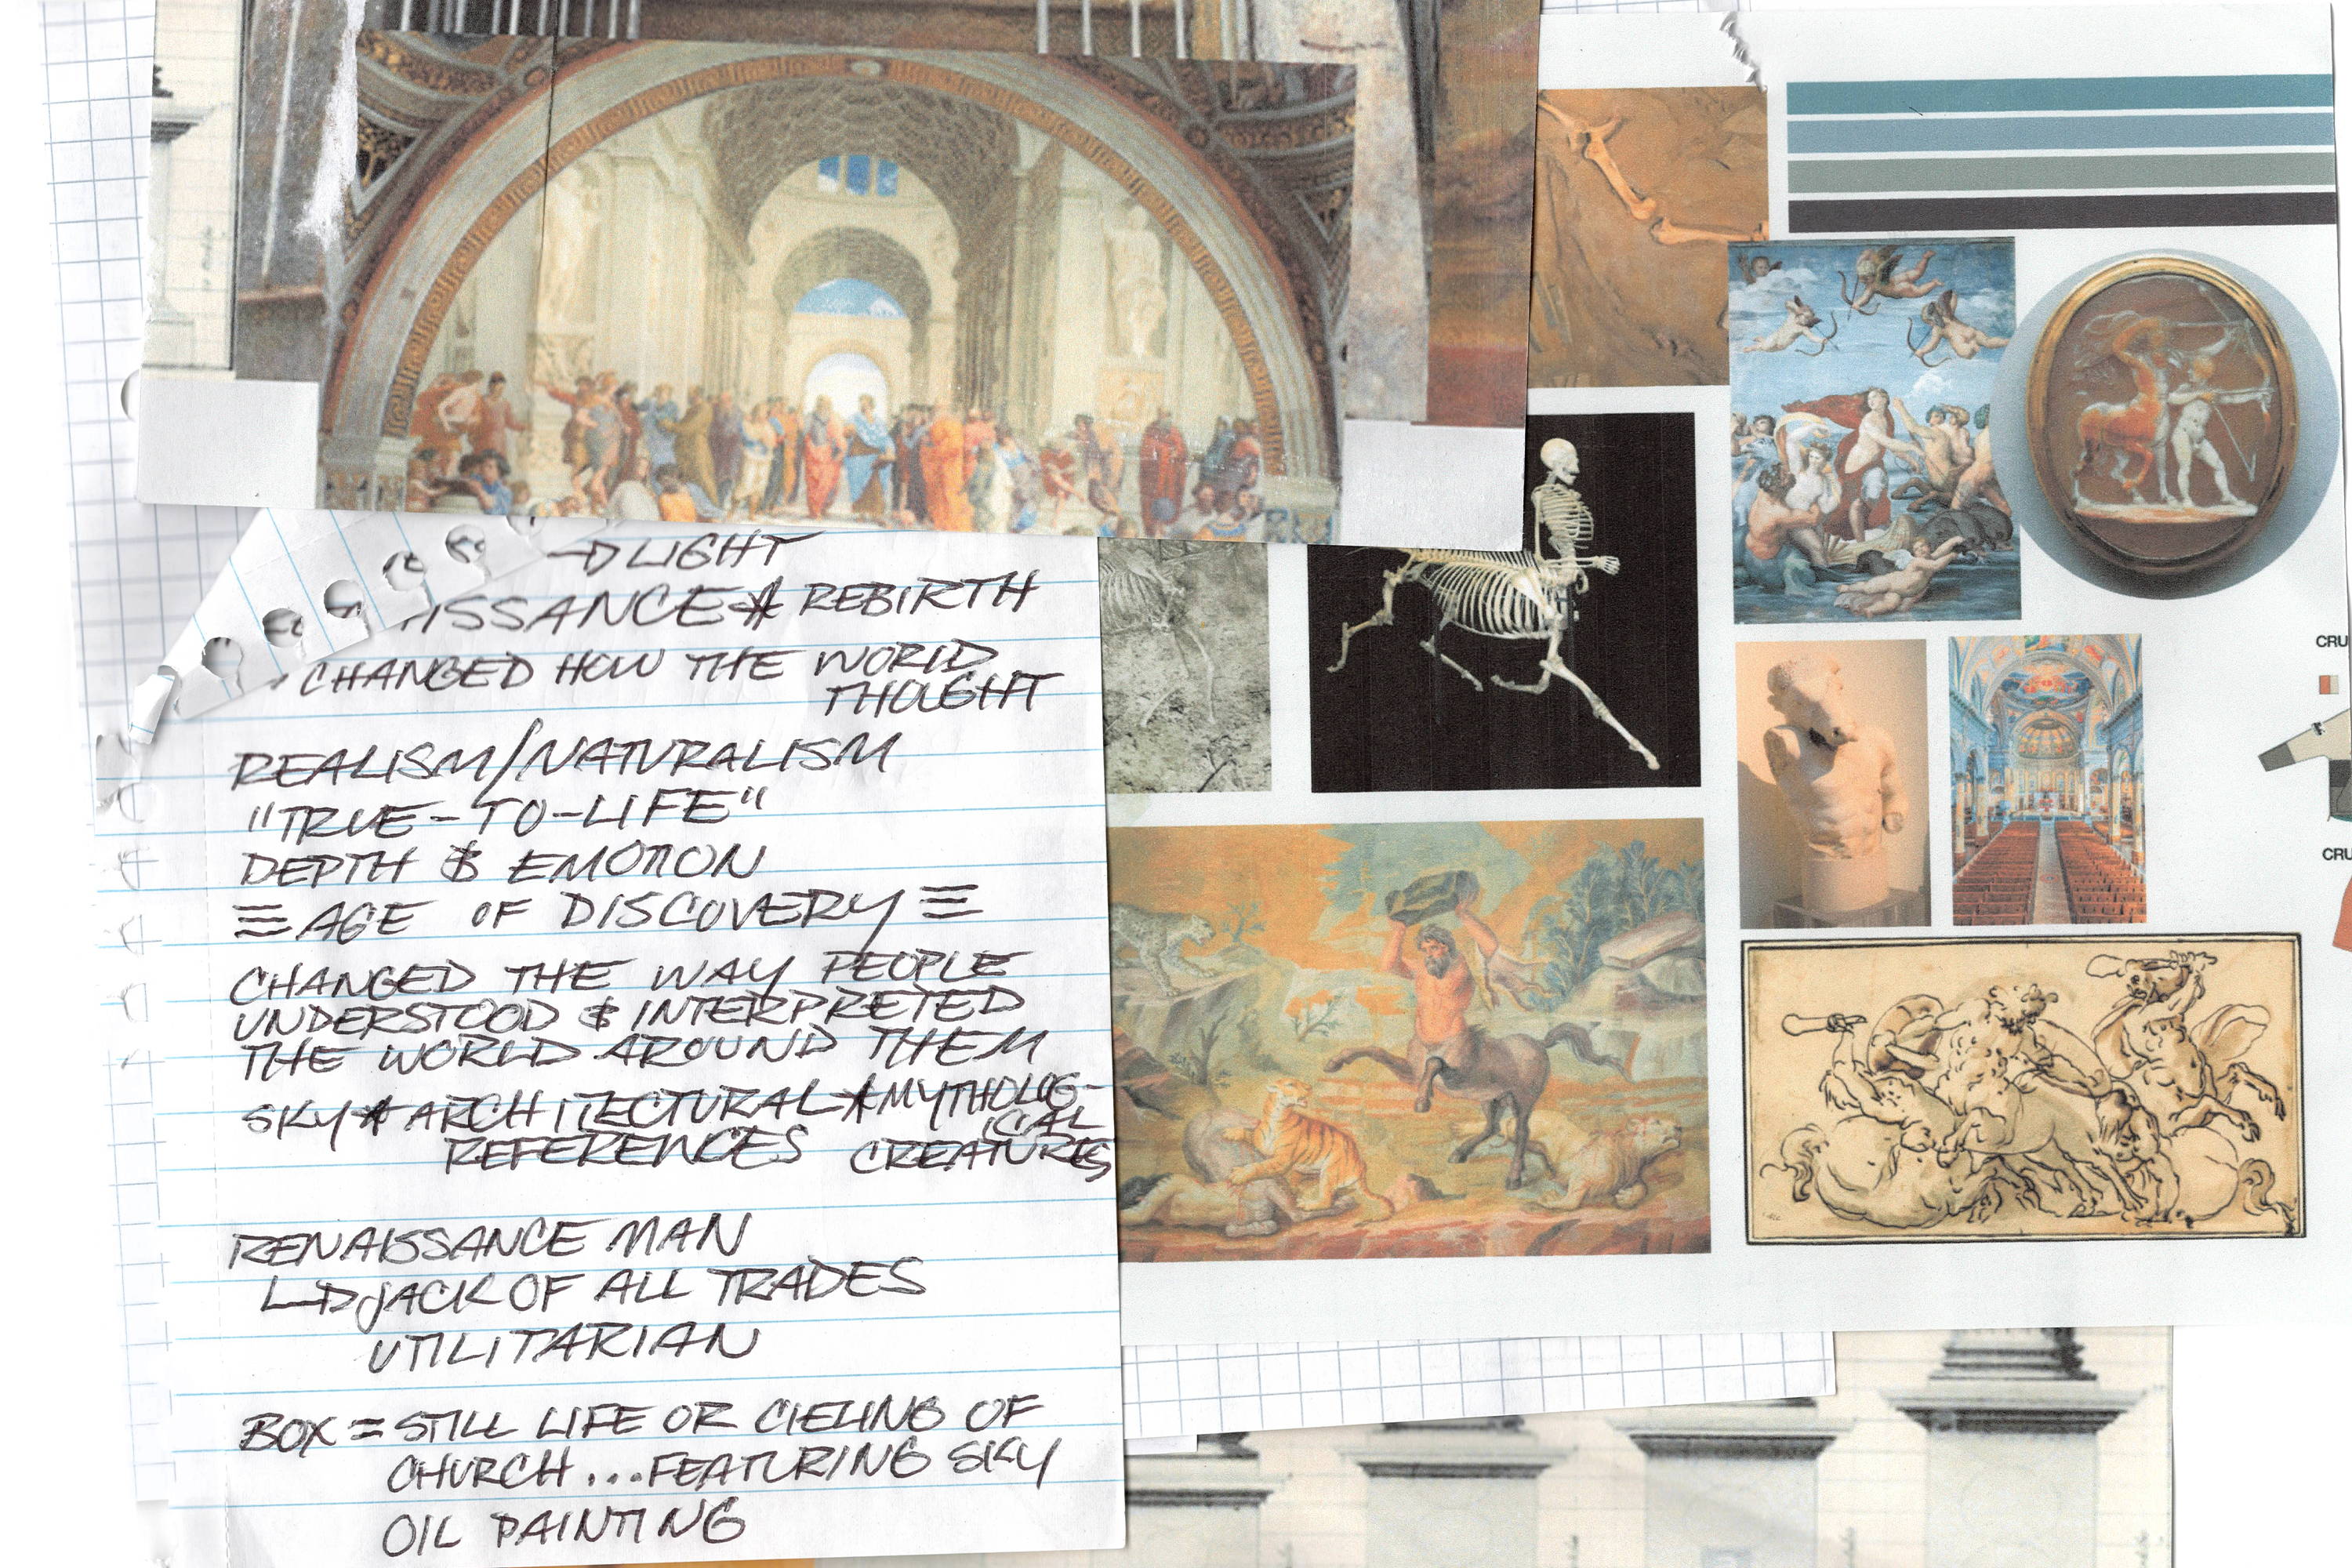 LIGHT
ISSANCE * REBIRTH
CHANGED HOW THE WORLD
THOUGHT
REALISM/NATURALISM
"TRUE-TO-LIFE"
DEPTH & EMOTION
AGE OF DISCOVERY
CHANGED THE WAY PEOPLE
UNDERSTOOD & INTERPRETED
THE WORLD AROUND THEM
SKY * ARCHITECTURAL * MYTHOLOG-
ICAL
REFERENCES CREATURES
RENAISSANCE MAN
JACK OF ALL TRADES
UTILITARIAN
BOX = STILL LIFE OR CIELING OF
CHURCH... FEATURING SKY
OIL PAINTING
CRU
CRU